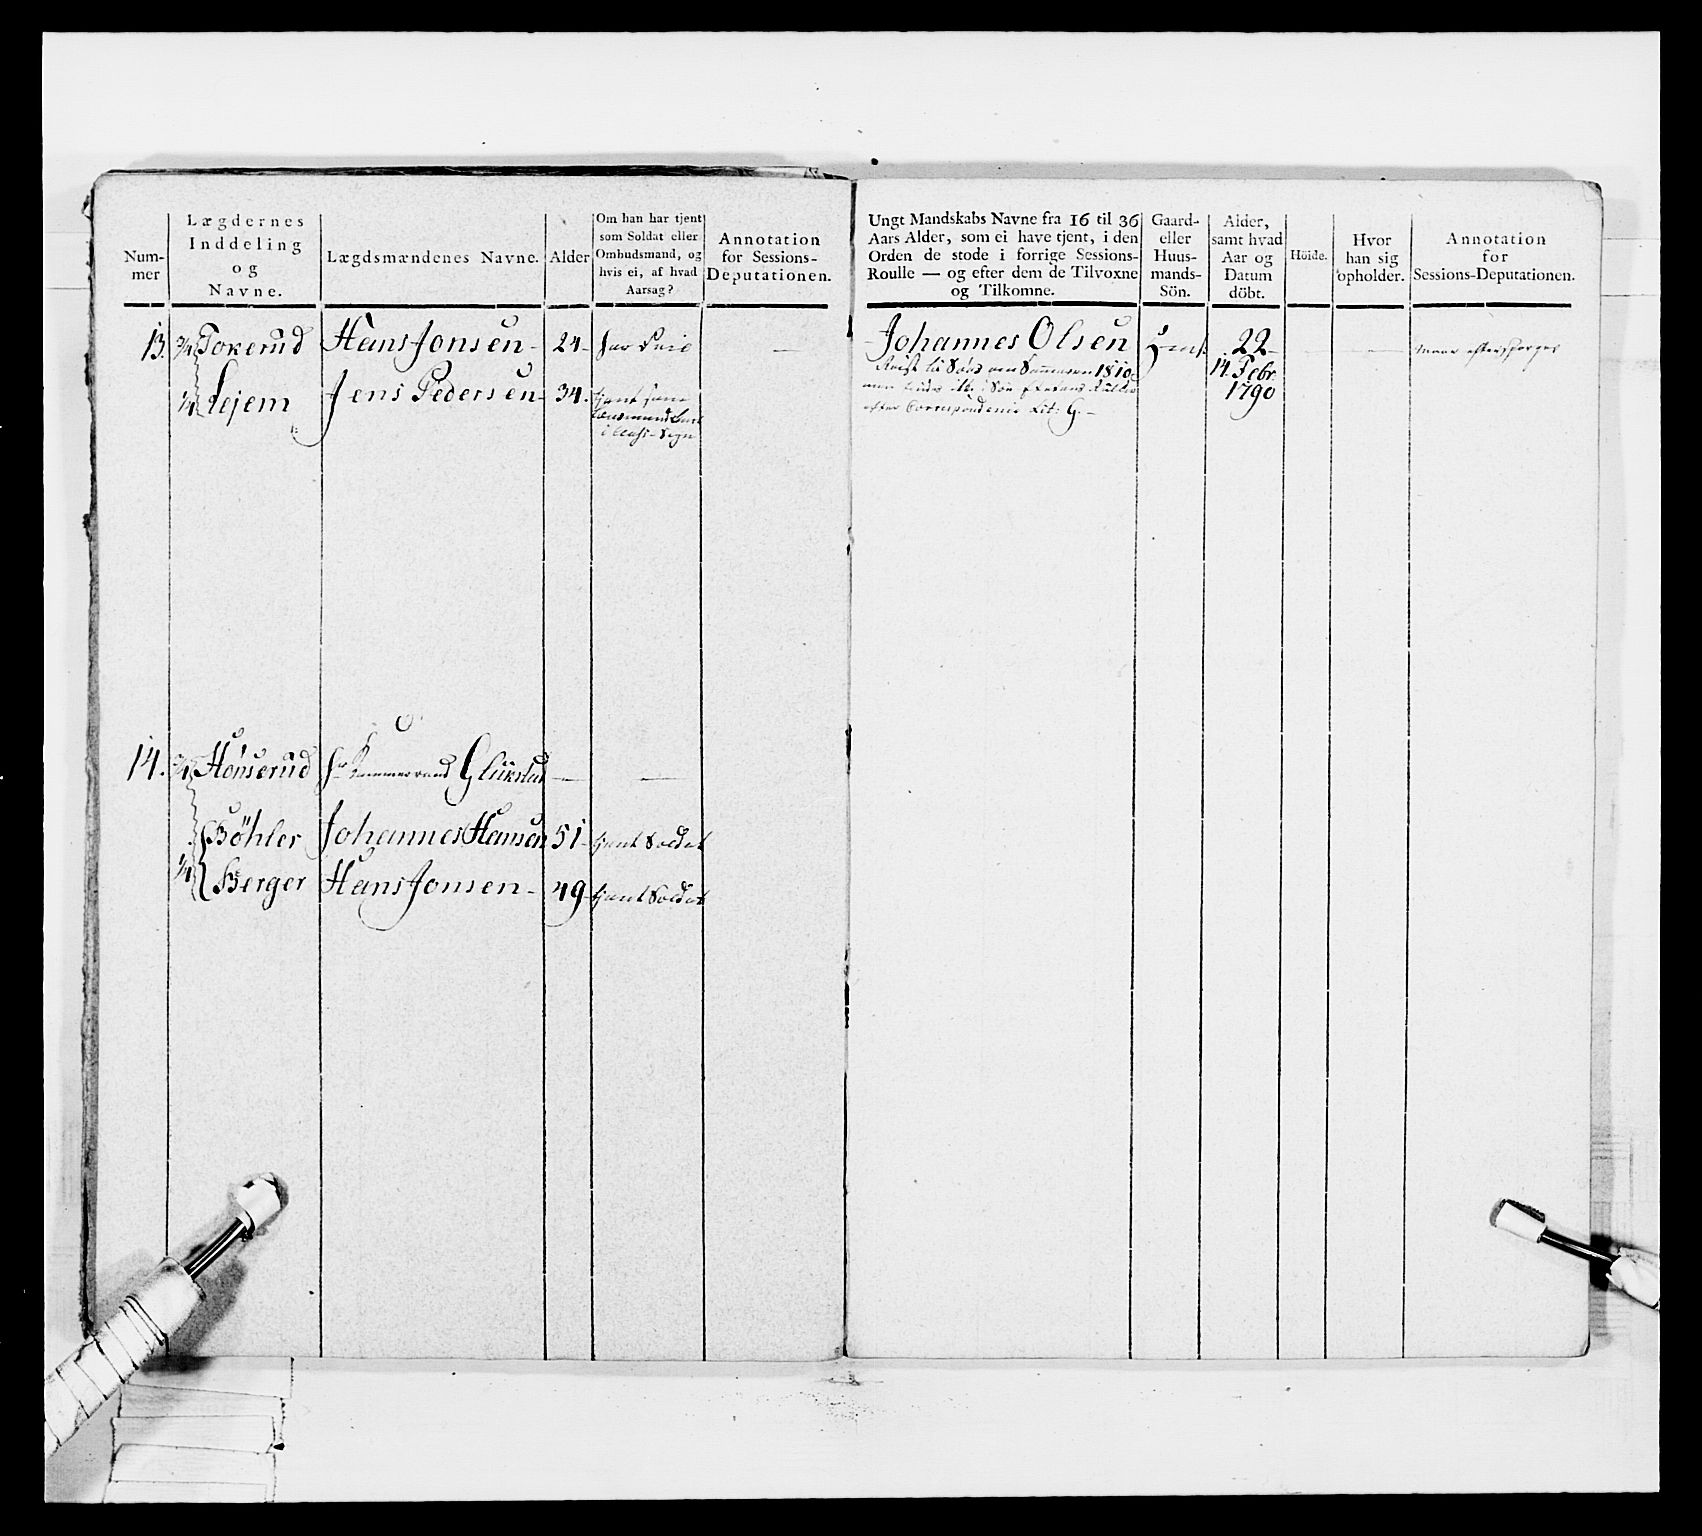 Num-
mer
Lægdernes
Inddeling
og
Navne.
Lægdsmændenes Navne.
Alder
Om han har tjent
som Soldat eller
Ombudsmand, og
hvis ei, af hvad
Aarsag?
Annotation
for Sessions-
Deputationen.
13. 3/4 Tokerud Hans Jonsen - 24 -
1/4 Lejem Jens Pedersen - 34. tjent som
14. 3/4 Hønserud Hr Kammerraad Glükstad — —
Bøhler Johannes Hansen 51 - tjent Soldat
1/4 Berger Hans Jonsen - 49 - tjent Soldat
Ungt Mandskabs Navne fra 16 til 36
Aars Alder, som ei have tjent, i den
Orden de stode i forrige Sessions-
Roulle — og efter dem de Tilvoxne
og Tilkomne.
Gaard-
eller
Huus-
mands-
Sön.
Alder,
samt hvad
Aar og
Datum
döbt.
Höide.
Hvor
han sig
opholder.
Annotation
for
Sessions-Deputationen.
Johannes Olsen 22 - — —
Reist til Søes om Sommeren 1810 14. Febr.
1790
efter Correspondence Lit: G. -